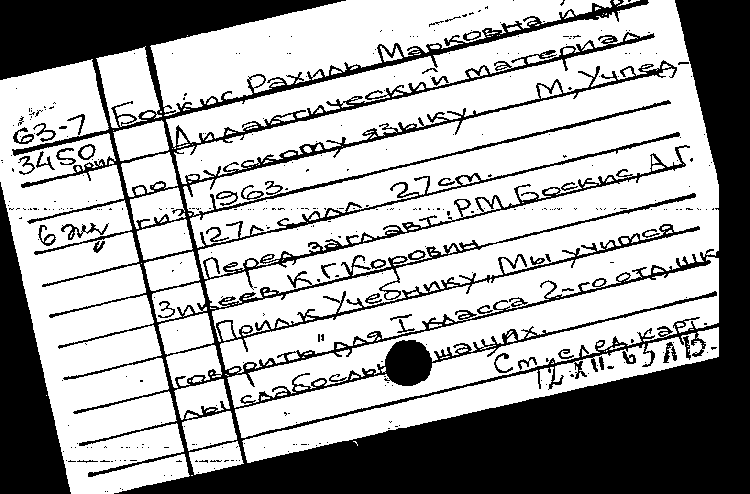 63-7
3450
прил
6 экз
Боскис, Рахиль Марковна и др.
Дидактический материал
по русскому языку. М., Учпед-
гиз, 1963.
127л. с илл. 27 cm.
Перед загл. авт.: Р.М. Боскис, А.Г.
Зикеев, К.Г. Коровин
Прил. к Учебнику „Мы учимся
говорить" для I класса 2-го отд. шк
лы слабослы шащих.
См. след. карт.
12.XII.63